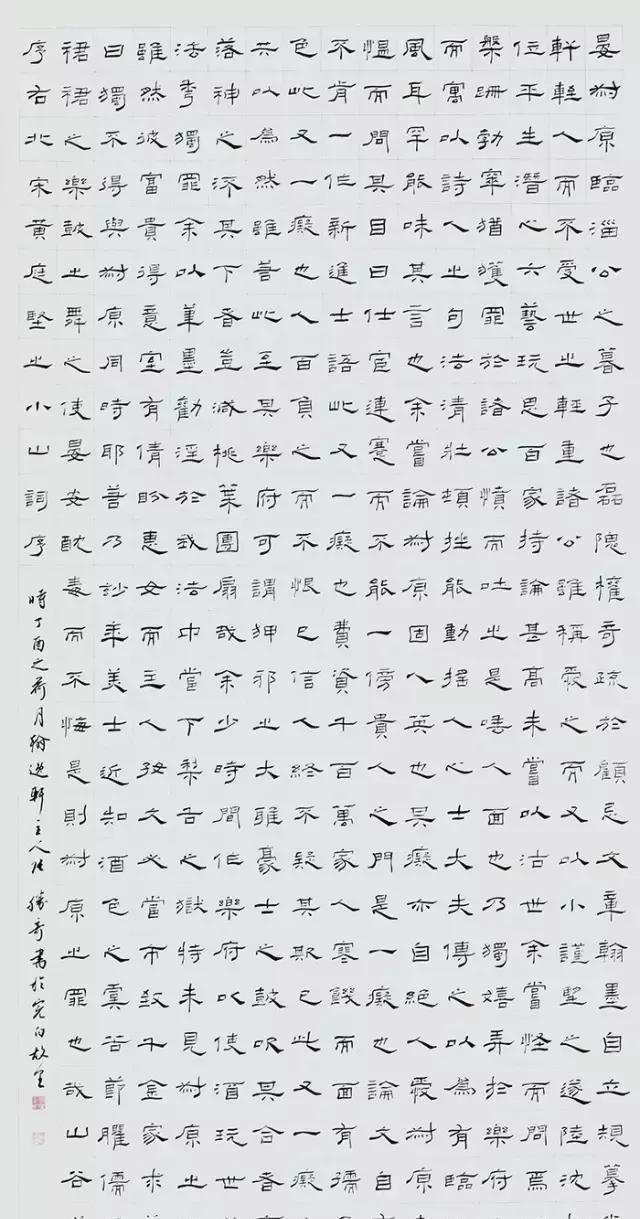 晏叔原臨淄公之暮子也磊隗權奇疏於顧忌文章翰墨自立規摹
軒輊人而不受世之輕重諸公雖稱愛之而又以小謹望之遂陸沈
位平生潛心六藝玩思百家持論甚高未嘗以沽世余嘗怪而問焉
槃跚勃窣猶獲罪於諸公憤而吐之是唾人面也乃獨嬉弄於樂府
而寓以詩人之句法清壯頓挫能動搖人心士大夫傳之以為有臨
風耳罕能味其言也余嘗論叔原固人英也其癡亦自絕人愛叔原
慍而問其目曰仕宦連蹇而不能一傍貴人之門是一癡也論文自
不肯一作新進士語此又一癡也費資千百萬家人寒饑而面有孺
色此又一癡也人百負之而不恨已信人終不疑其欺已此又一癡
共以為然雖若此至其樂府可謂狎邪之大雅豪士之鼓吹其合者
落神之流其下者豈減桃葉團扇哉余少時間作樂府以使酒玩世
法秀獨罪余以筆墨勸淫於我法中當下犁舌之獄特未見叔原之
雖然彼富貴得意室有倩盼惠女而主人好文必當市致千金家求
曰獨不得與叔原同時耶若乃妙年美士近知酒色之虞苦節臞儒
裙裙之樂鼓之舞之使晏安酖毒而不悔是則叔原之罪也哉山谷
序右北宋黃庭堅之小山詞序
時丁酉之荷月翰逸軒主人張勝奇書於完白故里